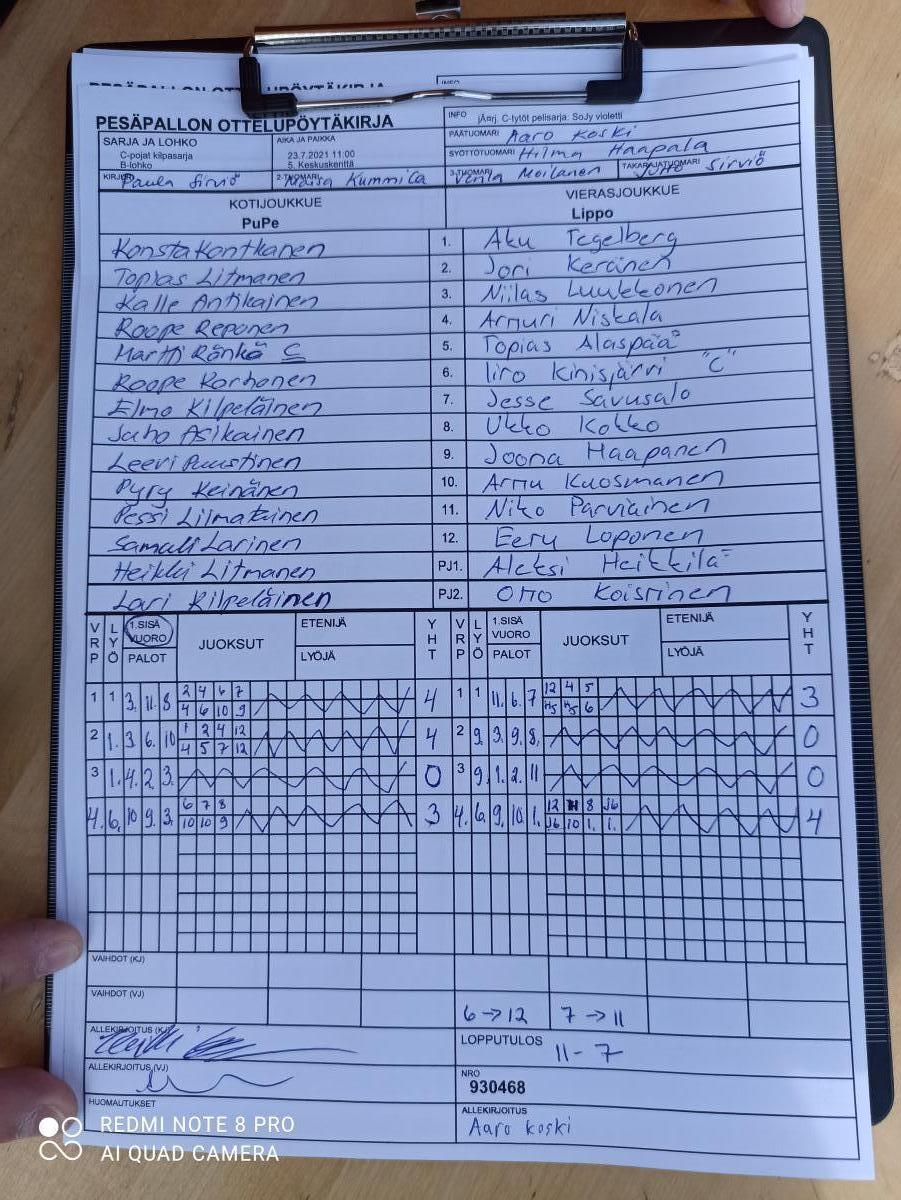 PESÄPALLON OTTELUPÖYTÄKIRJA
INFO jÄrrj. C-tytöt pelisarja: SoJy violetti
PÄÄTUOMARI Aaro Koski
SARJA JA LOHKO
C-pojat kilpasarja
B-lohko
AIKA JA PAIKKA
23.7.2021 11:00
5. Keskuskenttä
SYÖTTÖTUOMARI Hilma Haapala
KIRJURI Paula Sirviö
2-TUOMARI Maisa Kummila
3-TUOMARI Venla Moilanen
TAKARAJATUOMARI Juho Sirviö
KOTIJOUKKUE
PuPe
VIERASJOUKKUE
Lippo
Konsta Kontkanen 1. Aku Tegelberg
Topias Litmanen 2. Jori Keränen
Kalle Antikainen 3. Niilas Luukkonen
Roope Reponen 4. Artturi Niskala
Martti Ränkä C 5. Topias Alaspää
Roope Korhonen 6. Iiro Kinisjärvi "C"
Elmo Kilpeläinen 7. Jesse Savusalo
Juho Asikainen 8. Ukko Kokko
Leevi Puustinen 9. Joona Haapanen
Pyry Keinänen 10. Arttu Kuosmanen
Pessi Liimatainen 11. Niko Parviainen
Samuli Larinen 12. Eetu Loponen
Heikki Litmanen PJ1. Aleksi Heikkilä
Lari Kilpeläinen PJ2. Otto Koistinen
VRP LYÖ 1.SISÄ VUORO PALOT JUOKSUT ETENIJÄ LYÖJÄ YHT VRP LYÖ 1.SISÄ VUORO PALOT JUOKSUT ETENIJÄ LYÖJÄ YHT
1 1 3. 11. 8 2 4 6 7 4 1 1 11. 6. 7 12 4 5 3
4 6 10 9 H5 H5 6
2 1. 3 6. 10 1 2 4 12 4 2 9. 3. 9. 8. 0
4 5 7 12
3 1. 4. 2 3. 0 3 9. 1. 2. 11 0
4. 6. 10 9. 3. 6 7 8 3 4. 6. 9. 10. 1. 12 8 J6 4
10 10 9 J6 10 1. 1.
VAIHDOT (KJ)
VAIHDOT (VJ) 6→12 7→11
ALLEKIRJOITUS (KJ)
LOPPUTULOS 11-7
ALLEKIRJOITUS (VJ)
NRO
930468
HUOMAUTUKSET
ALLEKIRJOITUS
Aaro Koski
REDMI NOTE 8 PRO
AI QUAD CAMERA